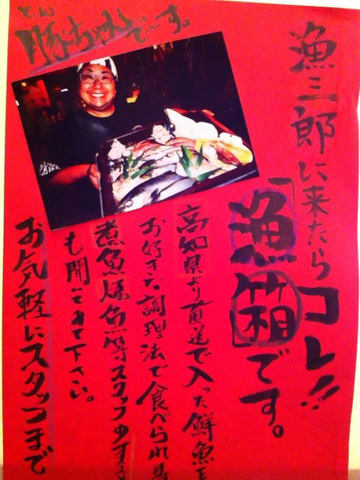 漁三郎に来たらコレ!!
「漁箱」です。
とん
豚ちゃんでーす。
高知県より直送で入った鮮魚を
お好きな調理法で食べられま
煮魚焼魚等スタッフ
も聞いてみて下さい。
お気軽にスタッフまで